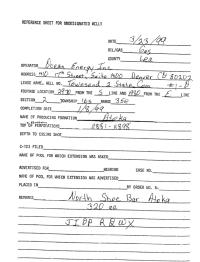 REFERENCE SHEET FOR UNDESIGNATED WELLS
DATE 3/23/99
OIL/GAS Gas
COUNTY Lea
OPERATOR Ocean Energy Inc
ADDRESS 410 17th Street, Suite 1400 Denver CO 80202
LEASE NAME, WELL NO. Townsend 2 State Com
FOOTAGE LOCATION FROM THE S LINE AND FROM THE E LINE
SECTION 2 TOWNSHIP 16s RANGE 35e
COMPLETION DATE 1/8/99
NAME OF PRODUCING FORMATION Atoka
TOP OF PERFORATIONS
DEPTH TO CASING SHOE
C-123 FILED
NAME OF POOL FOR WHICH EXTENSION WAS ASKED
ADVERTISED FOR HEARING CASE NO.
NAME OF POOL FOR WHICH EXTENSION WAS ADVERTISED
PLACED IN BY ORDER NO. R-
REMARKS North Shoe Bar Atoka
320 ea